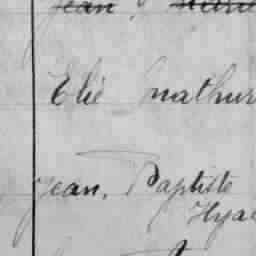 Jean
Elie Mathur
Jean. Baptiste
Hya